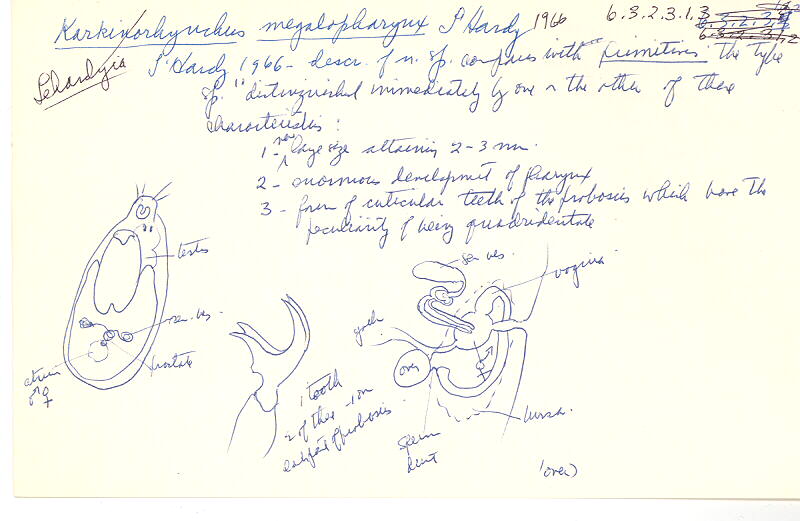 Karkinorhynchus megalopharynx L'Hardy 1966
6.3.2.3.1.3
Lehardyia
L'Hardy 1966 - descr. of n. sp. compares with primitivus the type
sp. "distinguished immediately by one or the other of these
characteristics:
1 - large size attaining 2-3 mm.
2 - enormous development of pharynx
3 - form of cuticular teeth of the proboscis which have the
peculiarity of being quadridentate
testis
sem. ves.
prostate
atrium
♂♀
1 tooth
2 of these - 1 on
each part of proboscis.
sem ves.
vagina
ov
sperm
duct
bursa.
(over)